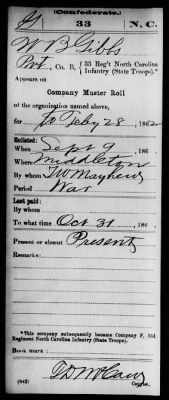 (Confederate.)
G 33 N. C.
W B Gibbs
Pvt, Co. B, 33 Reg't North Carolina
Infantry (State Troops).*
Appears on
Company Muster Roll
of the organization named above,
for To Feby 28, 1862
Enlisted:
When Sept 9, 186 .
Where Middleton
By whom T W Mayhew
Period War
Last paid:
By whom
To what time Oct 31, 186 .
Present or absent Present
Remarks:
*This company subsequently became Company F, 33d
Regiment North Carolina Infantry (State Troops).
Book mark:
(642) Copyist.